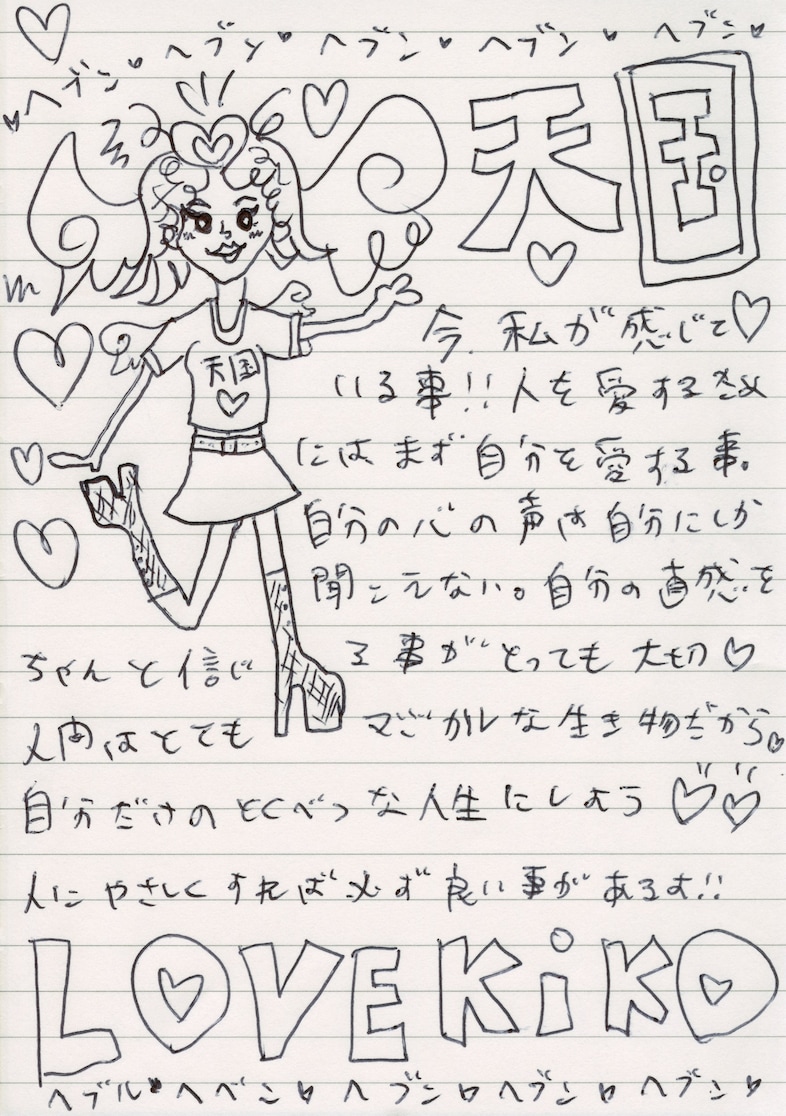 ヘブン ヘブン ヘブン ヘブン ヘブン
天国
天国
今、私が感じて
いる事!!人を愛するため
にはまず自分を愛する事。
自分の心の声は自分にしか
聞こえない。自分の直感を
ちゃんと信じる事がとっても大切♡
人間はとてもマジカルな生き物だから♡
自分だけのとくべつな人生にしよう♡♡
人にやさしくすれば必ず良い事があるよ!!
LOVE KiKO
ヘブン♥ヘブン♥ヘブン♥ヘブン♥ヘブン♥